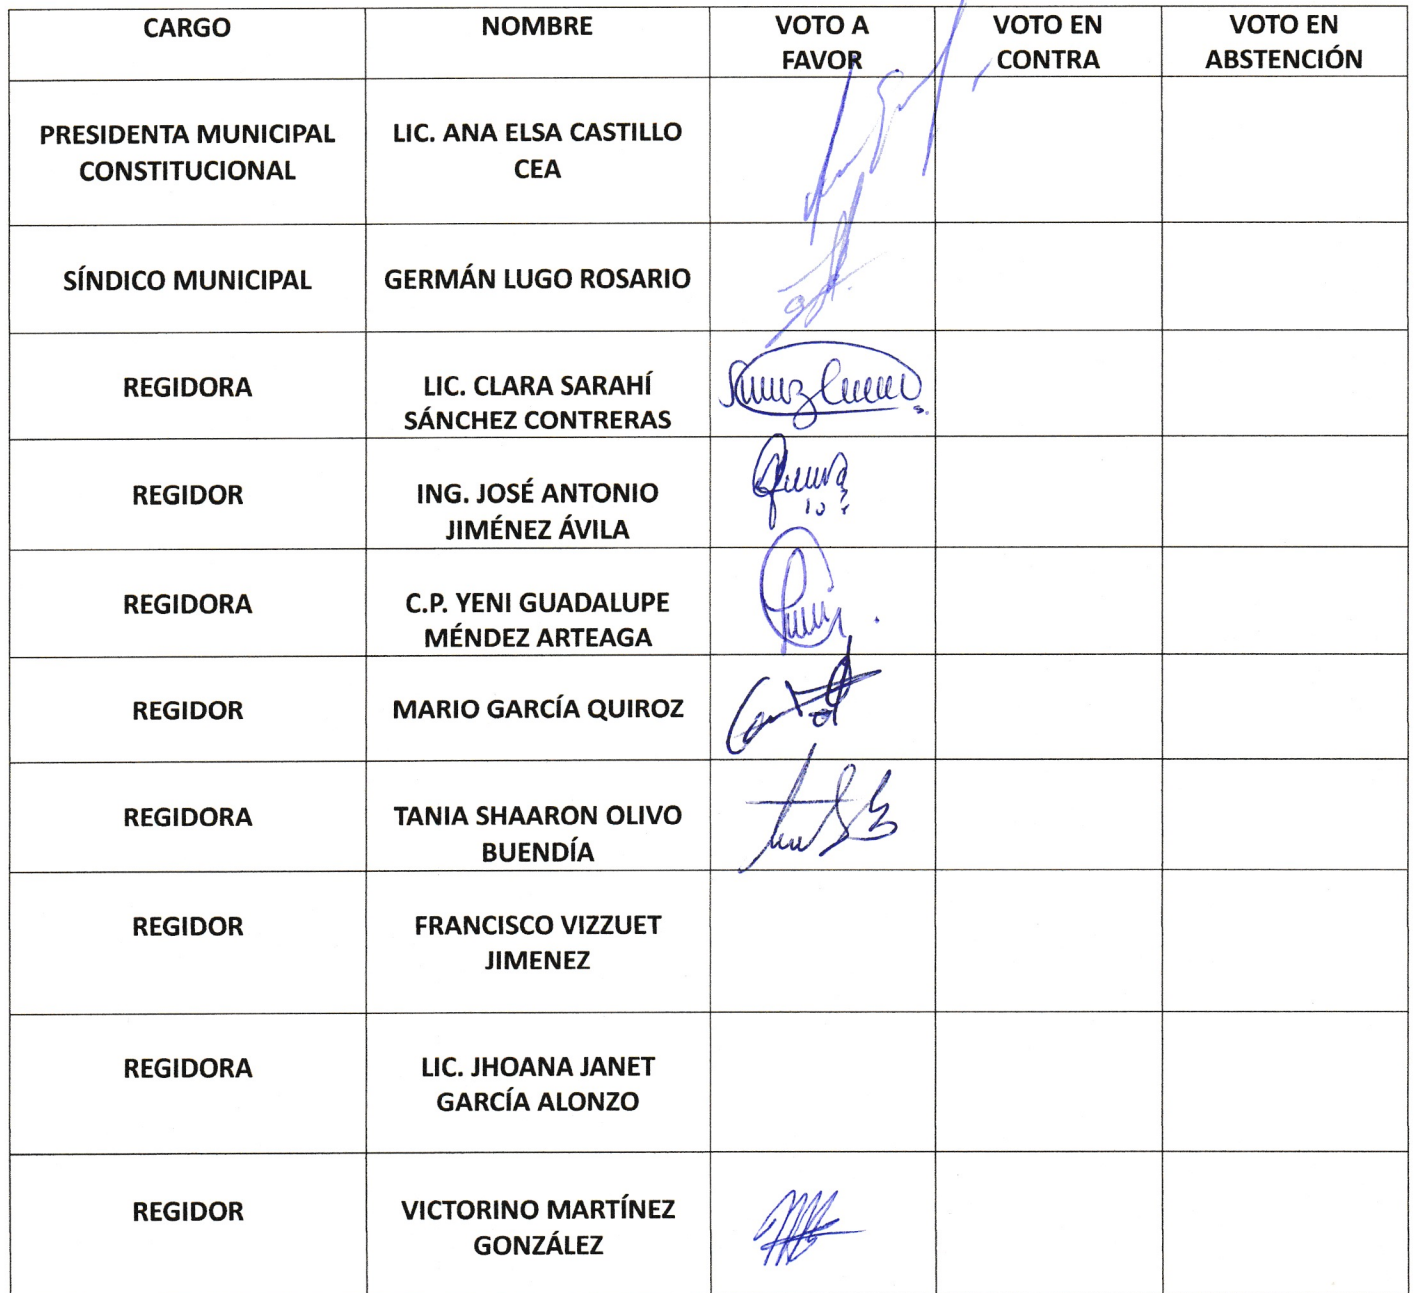 CARGO NOMBRE VOTO A FAVOR VOTO EN CONTRA VOTO EN ABSTENCIÓN
PRESIDENTA MUNICIPAL
CONSTITUCIONAL
LIC. ANA ELSA CASTILLO
CEA
SÍNDICO MUNICIPAL
GERMÁN LUGO ROSARIO
REGIDORA
LIC. CLARA SARAHÍ
SÁNCHEZ CONTRERAS
REGIDOR
ING. JOSÉ ANTONIO
JIMÉNEZ ÁVILA
REGIDORA
C.P. YENI GUADALUPE
MÉNDEZ ARTEAGA
REGIDOR
MARIO GARCÍA QUIROZ
REGIDORA
TANIA SHAARON OLIVO
BUENDÍA
REGIDOR
FRANCISCO VIZZUET
JIMENEZ
REGIDORA
LIC. JHOANA JANET
GARCÍA ALONZO
REGIDOR
VICTORINO MARTÍNEZ
GONZÁLEZ